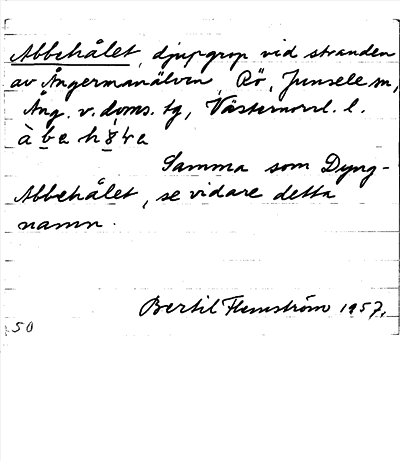 Abbehålet, djupgrop vid stranden
av Ångermanälven, Rö, Junsele sn,
Ång. v. doms. tg, Västernorrl. l.
Samma som Dyng-
Abbehålet, se vidare detta
namn.
Bertil Flemström 1957.
50